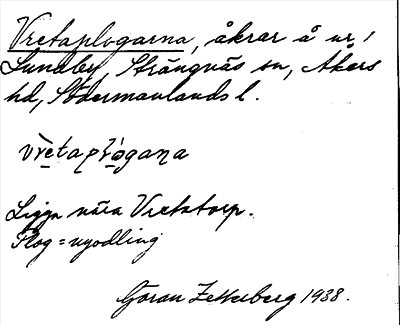 Vretaplogarna, åkrar å nr 1
Lundby, Strängnäs sn, Åkers
hd, Södermanlands l.
vrètaplógana
Ligga nära Vretatorp.
Plog = nyodling
Göran Zetterberg 1938.